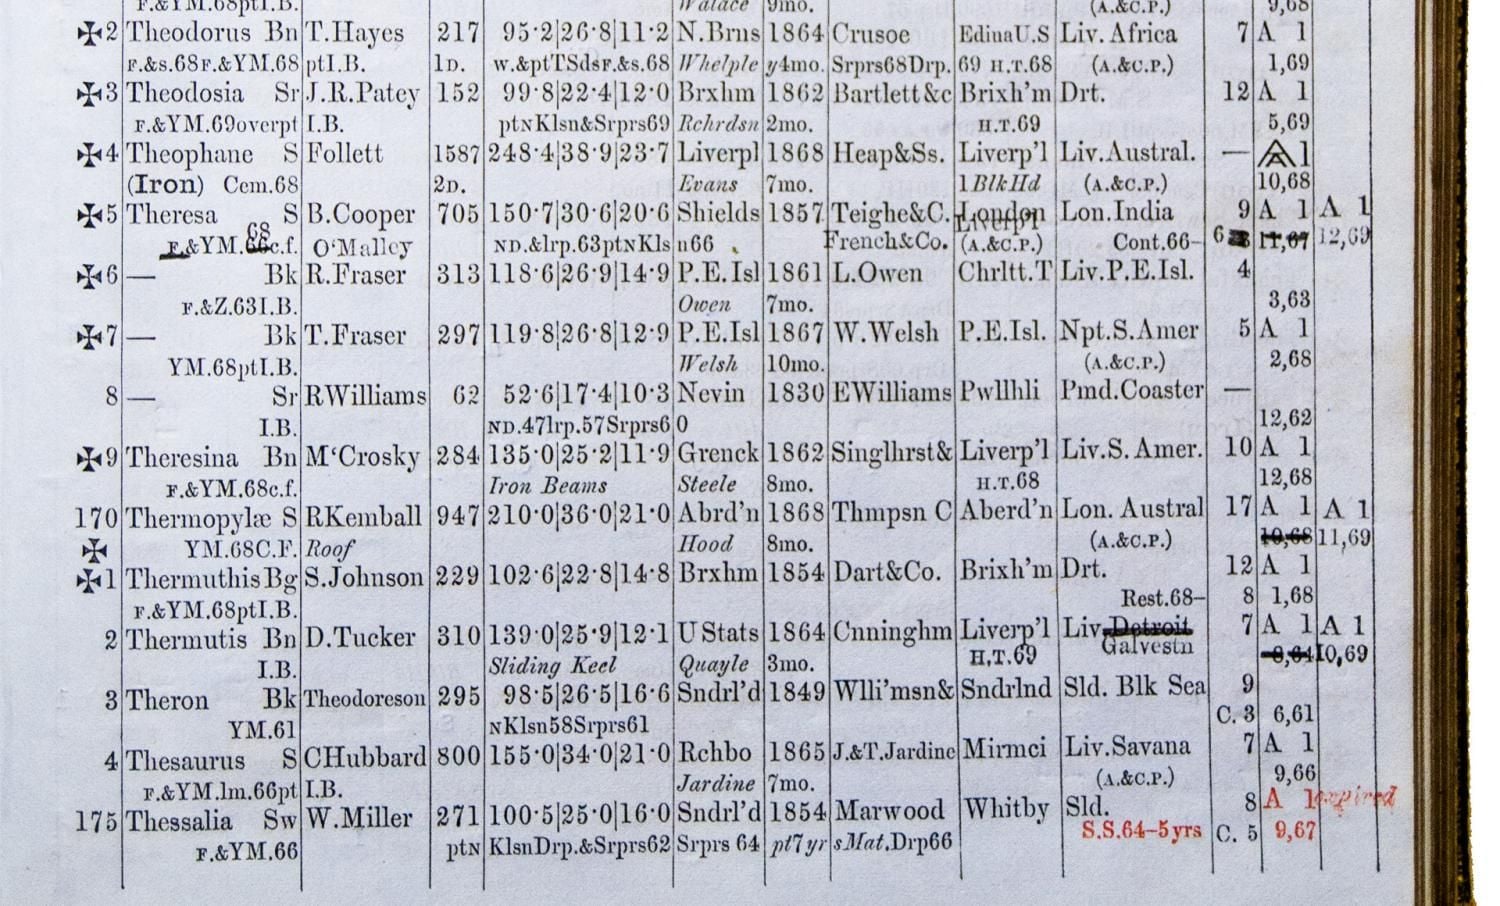 F.&YM.68ptI.B. Walace 9mo. (A.&C.P.) 9,68
✠2 Theodorus Bn T.Hayes 217 95·2 26·8 11·2 N.Brns 1864 Crusoe EdinaU.S Liv. Africa 7 A 1
F.&s.68F.&YM.68 ptI.B. 1D. w.&ptTSdsF.&s.68 Whelple y4mo. Srprs68Drp. 69 H.T.68 (A.&C.P.) 1,69
✠3 Theodosia Sr J.R.Patey 152 99·8 22·4 12·0 Brxhm 1862 Bartlett&c Brixh'm Drt. 12 A 1
F.&YM.69overpt I.B. ptNKlsn&Srprs69 Rchrdsn 2mo. H.T.69 5,69
✠4 Theophane S Follett 1587 248·4 38·9 23·7 Liverpl 1868 Heap&Ss. Liverp'l Liv.Austral. — A 1
(Iron) Cem.68 2D. Evans 7mo. 1BlkHd (A.&C.P.) 10,68
✠5 Theresa S B.Cooper 705 150·7 30·6 20·6 Shields 1857 Teighe&C. London Lon.India 9 A 1 A 1
68 Liverp'l
F.&YM.66c.f. O'Malley ND.&lrp.63ptNKls n66 French&Co. (A.&C.P.) Cont.66– 6 11,67 12,69
✠6 — Bk R.Fraser 313 118·6 26·9 14·9 P.E.Isl 1861 L.Owen Chrltt.T Liv.P.E.Isl. 4
F.&Z.63I.B. Owen 7mo. 3,63
✠7 — Bk T.Fraser 297 119·8 26·8 12·9 P.E.Isl 1867 W.Welsh P.E.Isl. Npt.S.Amer 5 A 1
YM.68ptI.B. Welsh 10mo. (A.&C.P.) 2,68
8 — Sr RWilliams 62 52·6 17·4 10·3 Nevin 1830 EWilliams Pwllhli Pmd.Coaster —
I.B. ND.47lrp.57Srprs6 0 12,62
✠9 Theresina Bn M'Crosky 284 135·0 25·2 11·9 Grenck 1862 Singlhrst& Liverp'l Liv.S.Amer. 10 A 1
F.&YM.68c.f. Iron Beams Steele 8mo. H.T.68 12,68
170 Thermopylæ S RKemball 947 210·0 36·0 21·0 Abrd'n 1868 Thmpsn C Aberd'n Lon. Austral 17 A 1 A 1
✠ YM.68C.F. Roof Hood 8mo. (A.&C.P.) 10,68 11,69
✠1 Thermuthis Bg S.Johnson 229 102·6 22·8 14·8 Brxhm 1854 Dart&Co. Brixh'm Drt. 12 A 1
F.&YM.68ptI.B. Rest.68– 8 1,68
2 Thermutis Bn D.Tucker 310 139·0 25·9 12·1 U Stats 1864 Cnninghm Liverp'l Liv.Detroit 7 A 1 A 1
I.B. Sliding Keel Quayle 3mo. H.T.69 Galvestn 8,64 10,69
3 Theron Bk Theodoreson 295 98·5 26·5 16·6 Sndrl'd 1849 Wlli'msn& Sndrlnd Sld. Blk Sea 9
YM.61 NKlsn58Srprs61 C. 3 6,61
4 Thesaurus S CHubbard 800 155·0 34·0 21·0 Rchbo 1865 J.&T.Jardine Mirmci Liv.Savana 7 A 1
F.&YM.lm.66pt I.B. Jardine 7mo. (A.&C.P.) 9,66
175 Thessalia Sw W.Miller 271 100·5 25·0 16·0 Sndrl'd 1854 Marwood Whitby Sld. 8 A 1 expired
S.S.64–5yrs C. 5 9,67
F.&YM.66 ptN KlsnDrp.&Srprs62 Srprs 64 pt7yr sMat.Drp66